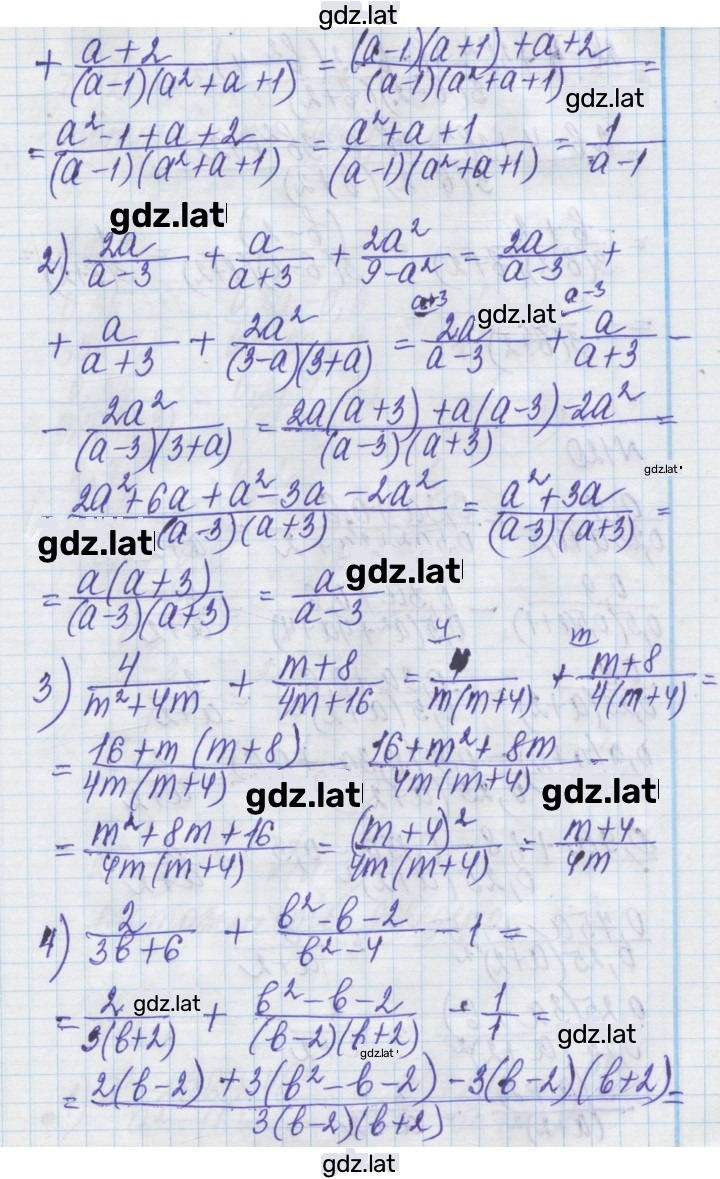 gdz.lat
+ (a+2)/((a-1)(a²+a+1)) = ((a-1)(a+1)+a+2)/((a-1)(a²+a+1)) =
gdz.lat
= (a²-1+a+2)/((a-1)(a²+a+1)) = (a²+a+1)/((a-1)(a²+a+1)) = 1/(a-1)
gdz.lat
2) 2a/(a-3) + a/(a+3) + 2a²/(9-a²) = 2a/(a-3) +
a+3 a-3
gdz.lat
+ a/(a+3) + 2a²/((3-a)(3+a)) = 2a/(a-3) + a/(a+3) -
- 2a²/((a-3)(3+a)) = (2a(a+3)+a(a-3)-2a²)/((a-3)(a+3)) =
gdz.lat
(2a²+6a+a²-3a-2a²)/((a-3)(a+3)) = (a²+3a)/((a-3)(a+3)) =
gdz.lat
gdz.lat
= a(a+3)/((a-3)(a+3)) = a/(a-3)
4 m
3) 4/(m²+4m) + (m+8)/(4m+16) = 4/(m(m+4)) + (m+8)/(4(m+4)) =
= (16+m(m+8))/(4m(m+4)) (16+m²+8m)/(4m(m+4)) =
gdz.lat
gdz.lat
= (m²+8m+16)/(4m(m+4)) = (m+4)²/(4m(m+4)) = (m+4)/(4m)
4) 2/(3b+6) + (b²-b-2)/(b²-4) - 1 =
gdz.lat
= 2/(3(b+2)) + (b²-b-2)/((b-2)(b+2)) - 1/1 =
gdz.lat
gdz.lat
= (2(b-2)+3(b²-b-2)-3(b-2)(b+2))/(3(b-2)(b+2)) =
gdz.lat